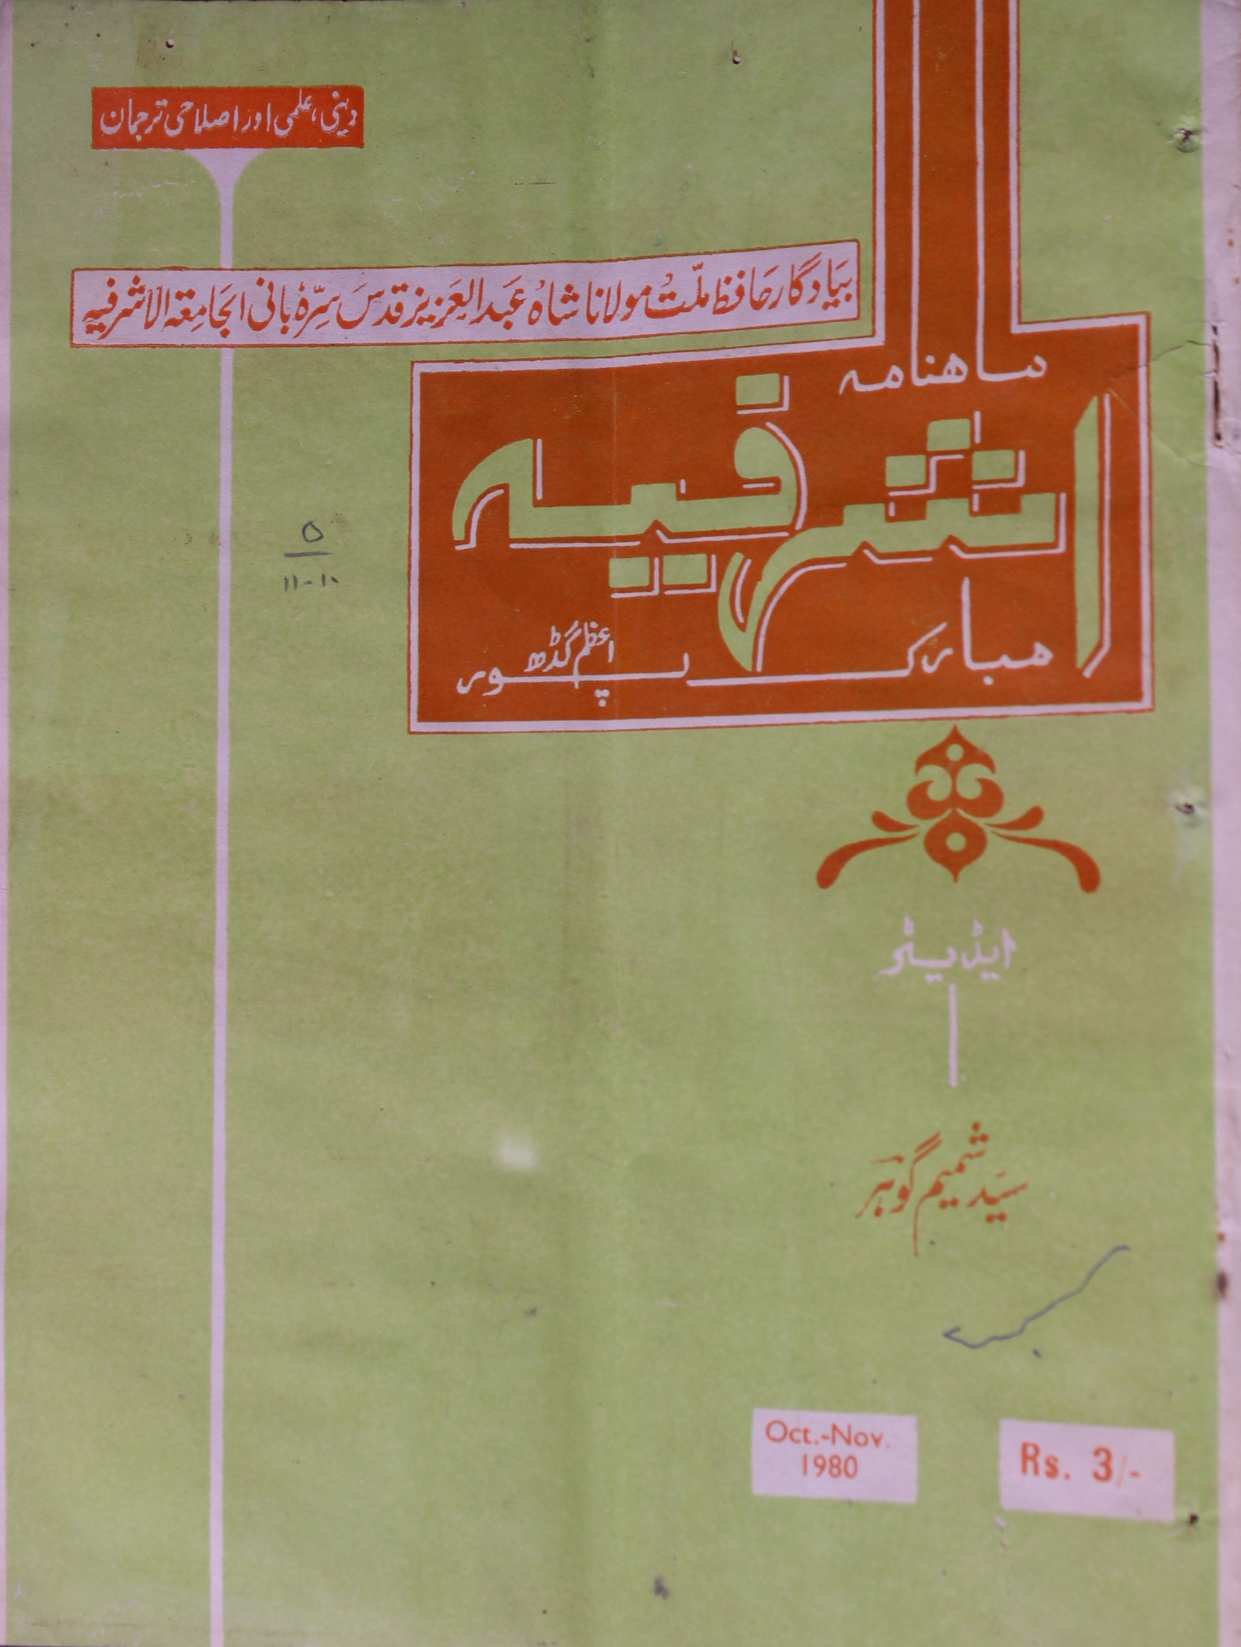 دینی، علمی اور اصلاحی ترجمان
بیادگار حافظ ملّت مولانا شاہ عبد العزیز قدس سرّہٗ بانی الجامعۃ الاشرفیہ
ماهنامه
اشرفیہ
مبارکپور
اعظم گڈھ
۵
۱۱-۱۰
ایڈیٹر
سیّد شمیم گوہر
Oct.-Nov.
1980
Rs. 3/-